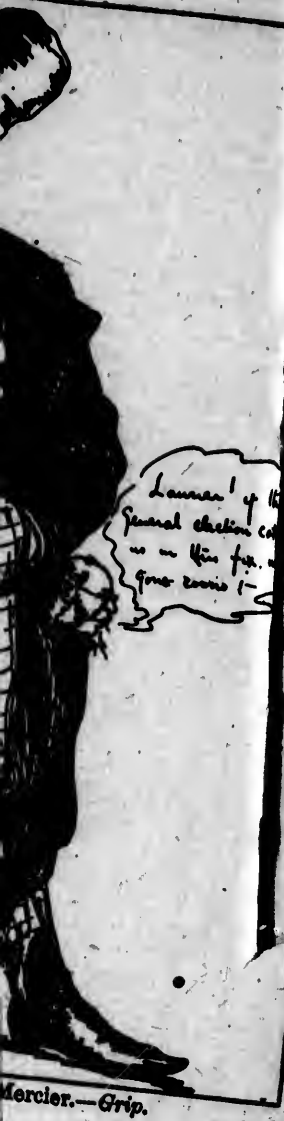 Laurier! if th
General election cat
us in this fix. w
gone coons!—
Mercier.—Grip.